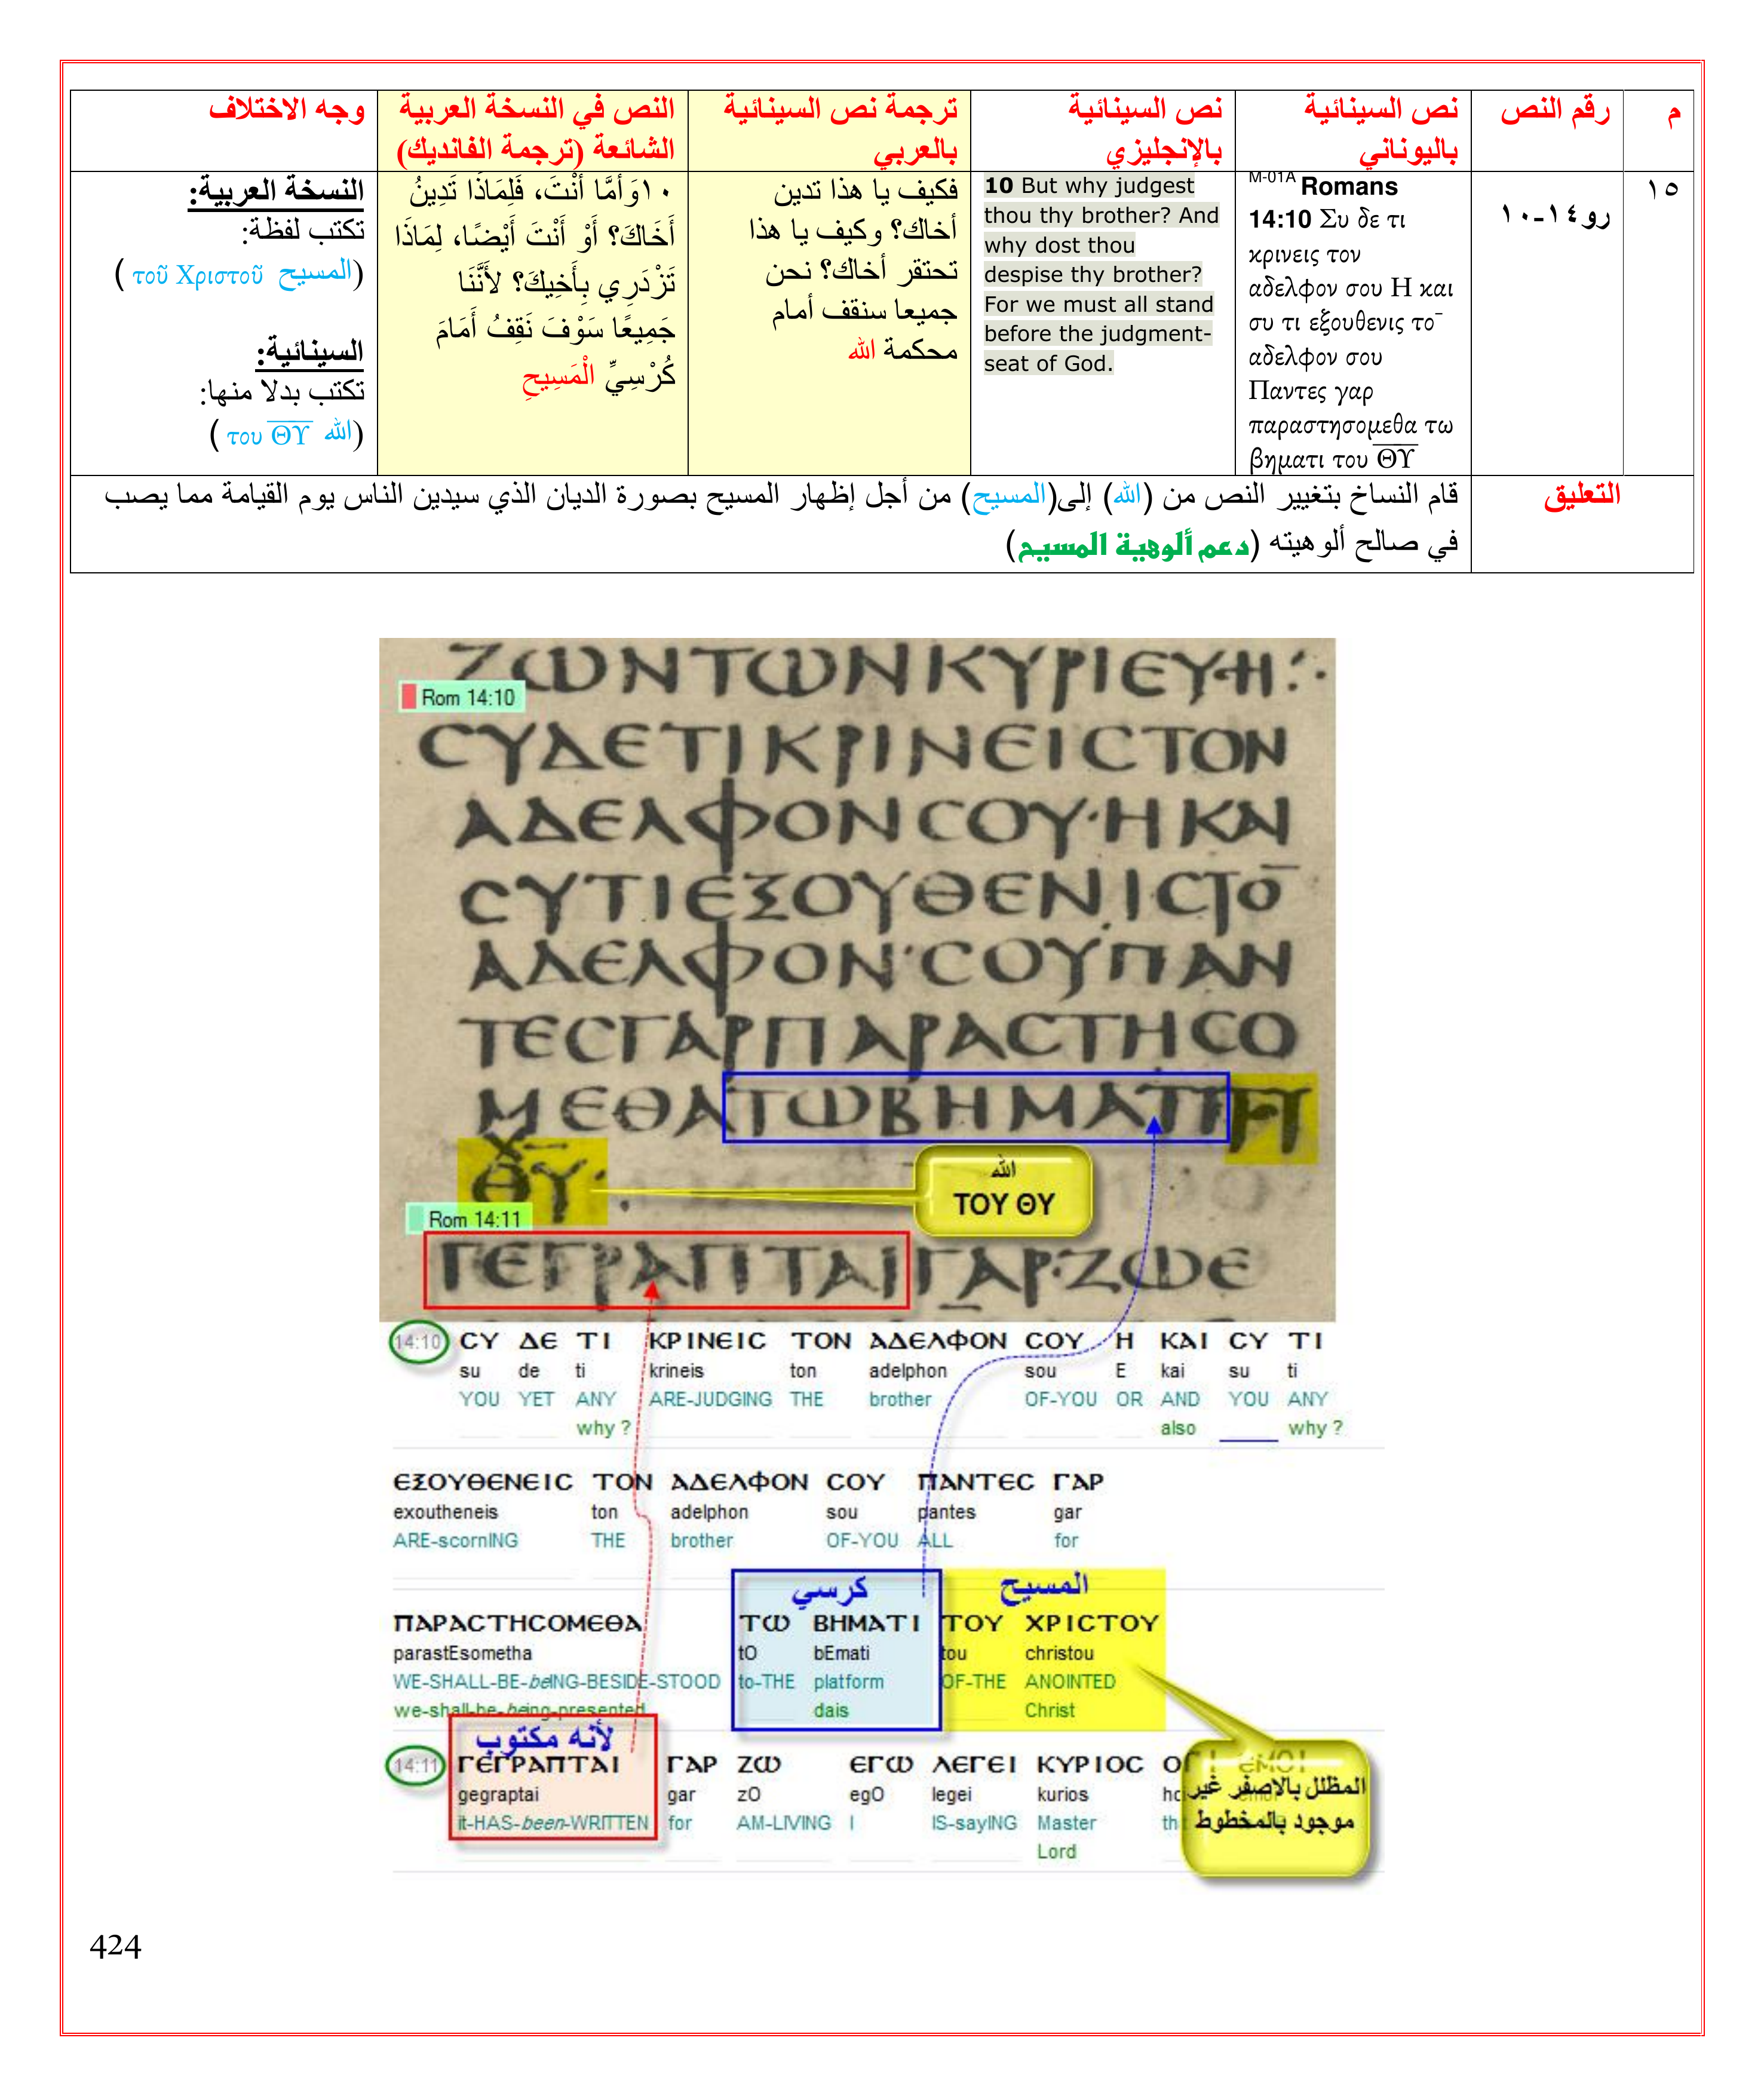 م
رقم النص
نص السينائية
باليوناني
نص السينائية
بالإنجليزي
ترجمة نص السينائية
بالعربي
النص في النسخة العربية
الشائعة (ترجمة الفانديك)
وجه الاختلاف
١٥
رو١٤-١٠
M-01A Romans
14:10 Συ δε τι
κρινεις τον
αδελφον σου Η και
συ τι εξουθενις το¯
αδελφον σου
Παντες γαρ
παραστησομεθα τω
βηματι του ΘΥ
10 But why judgest
thou thy brother? And
why dost thou
despise thy brother?
For we must all stand
before the judgment-
seat of God.
فكيف يا هذا تدين
أخاك؟ وكيف يا هذا
تحتقر أخاك؟ نحن
جميعا سنقف أمام
محكمة الله
١٠وَأَمَّا أَنْتَ، فَلِمَاذَا تَدِينُ
أَخَاكَ؟ أَوْ أَنْتَ أَيْضًا، لِمَاذَا
تَزْدَرِي بِأَخِيكَ؟ لأَنَّنَا
جَمِيعًا سَوْفَ نَقِفُ أَمَامَ
كُرْسِيِّ الْمَسِيحِ
النسخة العربية:
تكتب لفظة:
(المسيح τοῦ Χριστοῦ )
السينائية:
تكتب بدلا منها:
(الله του ΘΥ )
التعليق
قام النساخ بتغيير النص من (الله) إلى(المسيح) من أجل إظهار المسيح بصورة الديان الذي سيدين الناس يوم القيامة مما يصب
في صالح ألوهيته (دعم ألوهية المسيح)
ΖΩΝΤΩΝΚΥΡΙΕΥΗ
Rom 14:10
ϹΥΔΕΤΙΚΡΙΝΕΙϹΤΟΝ
ΑΔΕΛΦΟΝϹΟΥ·ΗΚΑΙ
ϹΥΤΙΕΞΟΥΘΕΝΙϹΤΟ¯
ΑΔΕΛΦΟΝ·ϹΟΥΠΑΝ
ΤΕϹΓΑΡΠΑΡΑϹΤΗϹΟ
ΜΕΘΑΤΩΒΗΜΑΤΙ
ΘΥ
الله
ΤΟΥ ΘΥ
Rom 14:11
ΓΕΓΡΑΠΤΑΙΓΑΡ·ΖΩΕ
14:10 ϹΥ ΔΕ ΤΙ ΚΡΙΝΕΙϹ ΤΟΝ ΑΔΕΛΦΟΝ ϹΟΥ Η ΚΑΙ ϹΥ ΤΙ
su de ti krineis ton adelphon sou E kai su ti
YOU YET ANY ARE-JUDGING THE brother OF-YOU OR AND YOU ANY
why ? also why ?
ΕΞΟΥΘΕΝΕΙϹ ΤΟΝ ΑΔΕΛΦΟΝ ϹΟΥ ΠΑΝΤΕϹ ΓΑΡ
exoutheneis ton adelphon sou pantes gar
ARE-scornING THE brother OF-YOU ALL for
كرسي
المسيح
ΠΑΡΑϹΤΗϹΟΜΕΘΑ ΤΩ ΒΗΜΑΤΙ ΤΟΥ ΧΡΙϹΤΟΥ
parastEsometha tO bEmati tou christou
WE-SHALL-BE-beING-BESIDE-STOOD to-THE platform OF-THE ANOINTED
we-shall-be-being-presented dais Christ
لأنه مكتوب
14:11 ΓΕΓΡΑΠΤΑΙ ΓΑΡ ΖΩ ΕΓΩ ΛΕΓΕΙ ΚΥΡΙΟϹ
gegraptai gar zO egO legei kurios
it-HAS-been-WRITTEN for AM-LIVING I IS-sayING Master
Lord
المظلل بالاصفر غير
موجود بالمخطوط
424